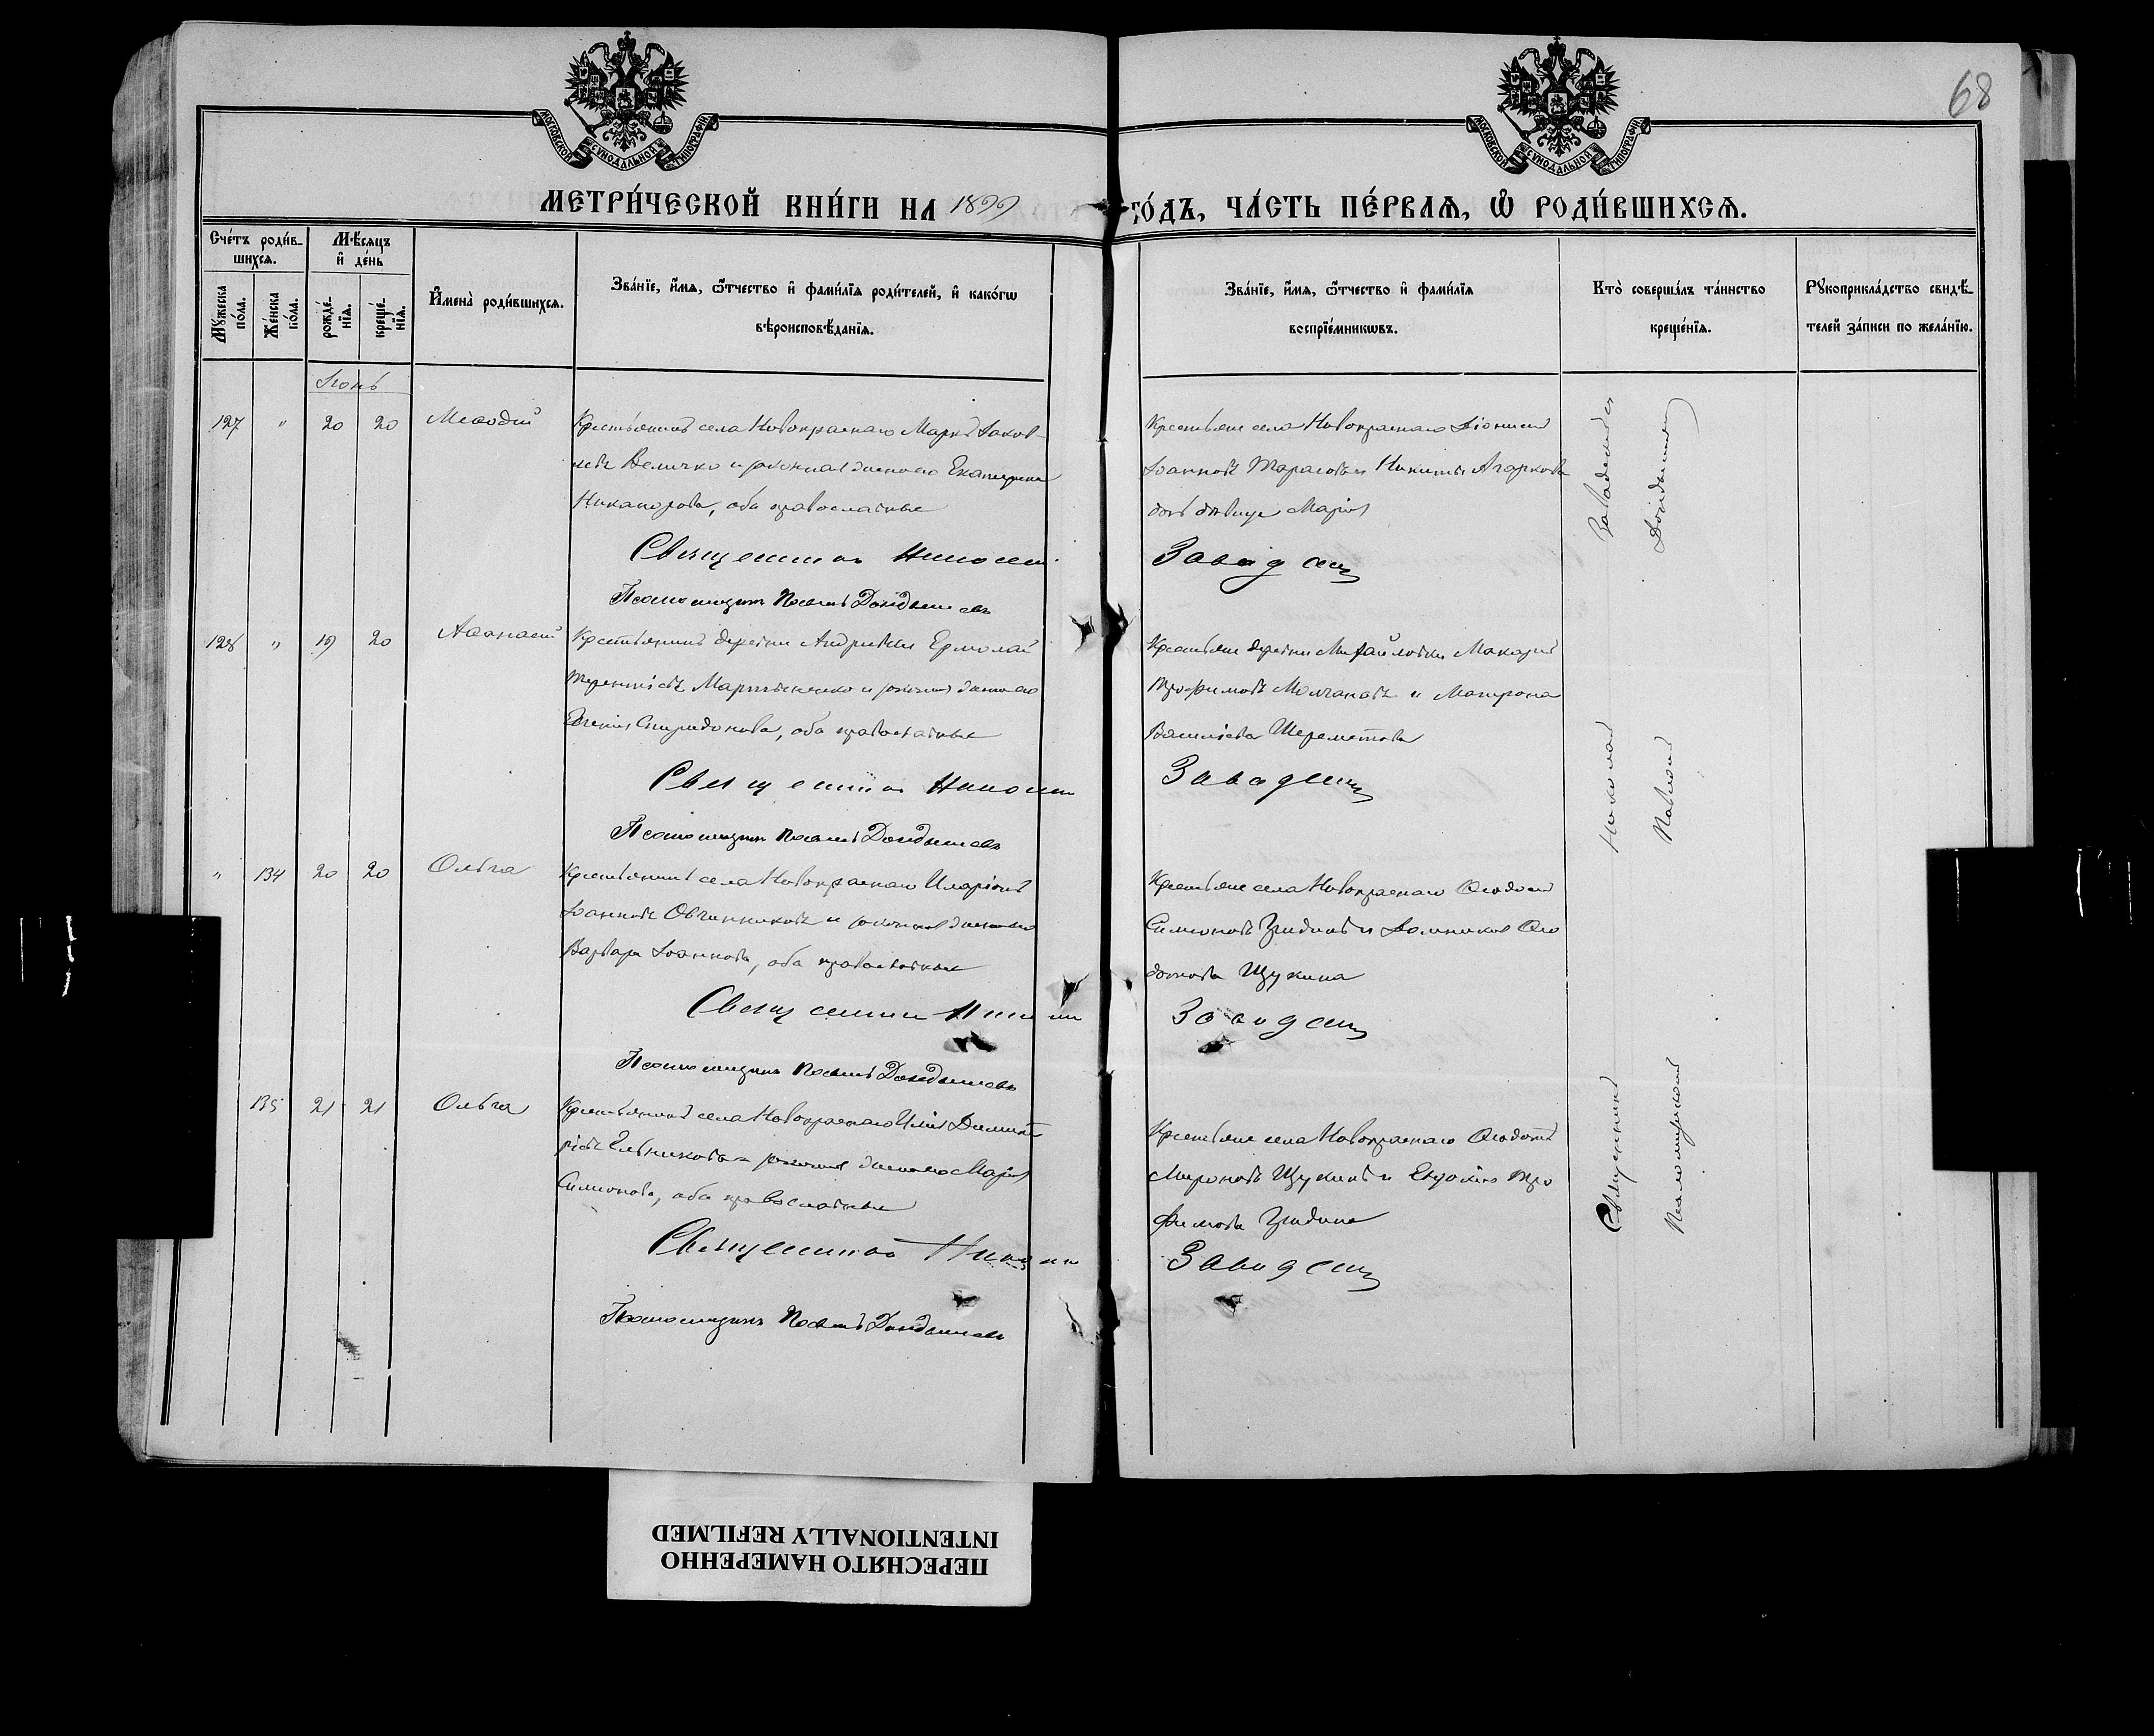 68
МОСКОВСКОЙ СУНОДАЛЬНОЙ ТИПОГРАФІИ
МОСКОВСКОЙ СУНОДАЛЬНОЙ ТИПОГРАФІИ
МЕТРИ́ЧЕСКОЙ КНИ́ГИ НА 1899 ГО́ДЪ, ЧА́СТЬ ПЕ́РВАѦ, Ѡ҆ РОДИ́ВШИХСѦ.
Сче́тъ роди́в-
шихсѧ.
Мꙋ́жеска по́ла.
Же́нска по́ла.
Мѣ́сѧцъ
и҆ де́нь
рожде́-
нїѧ.
креще́-
нїѧ.
И҆мена̀ роди́вшихсѧ.
Зва́нїе, и҆́мѧ, ѻ҆́тчество и҆ фами́лїѧ роди́телей, и҆ како́гѡ
вѣроисповѣ́данїѧ.
Зва́нїе, и҆́мѧ, ѻ҆́тчество и҆ фами́лїѧ
воспрїе́мникѡвъ.
Кто̀ соверша́лъ та́инство
креще́нїѧ.
Рꙋкоприкла́дство свидѣ́-
телей за́писи по жела́нїю.
Іюнь
127 " 20 20 Меѳодій
Крестьянинъ села Новокраснаго Маркъ Іаков-
левъ Величко и законная жена его Екатерина
Никанорова, оба православные
Священникъ Николай
Псаломщикъ Павелъ Дойдышевъ
Крестьяне села Новокраснаго Діонисій
Іоанновъ Тарасовъ и Никиты Агаркова
дочь дѣвица Марія
Завадскій
128 " 19 20 Аѳанасій
Крестьянинъ деревни Андреевки Ермолай
Терентіевъ Мартыненко и законная жена его
Евгенія Спиридонова, оба православные
Священникъ Николай
Псаломщикъ Павелъ Дойдышевъ
Крестьяне деревни Михайловки Макарій
Трофимовъ Молчановъ и Матрона
Василіева Шереметова
Завадскій
" 134 20 20 Ольга
Крестьянинъ села Новокраснаго Иларіонъ
Іоанновъ Овчинниковъ и законная жена его
Варвара Іоаннова, оба православные
Священникъ Николай
Псаломщикъ Павелъ Дойдышевъ
Крестьяне села Новокраснаго Ѳеодосій
Симеоновъ и Домникія Ѳео
Щукина
Завадскій
135 21 21 Ольга
Крестьянинъ села Новокраснаго Илія Димит
ріевъ Ельниковъ и законная жена его Марія
Симеонова, оба православные
Священникъ Николай
Псаломщикъ Павелъ Дойдышевъ
Крестьяне села Новокраснаго Ѳеодотъ
Мироновъ Щукинъ и Евдокія Тро
фимова
Завадскій
Священникъ Николай Завадскій
Псаломщикъ Павелъ Дойдышевъ
ПЕРЕСНЯТО НАМЕРЕННО
INTENTIONALLY REFILMED